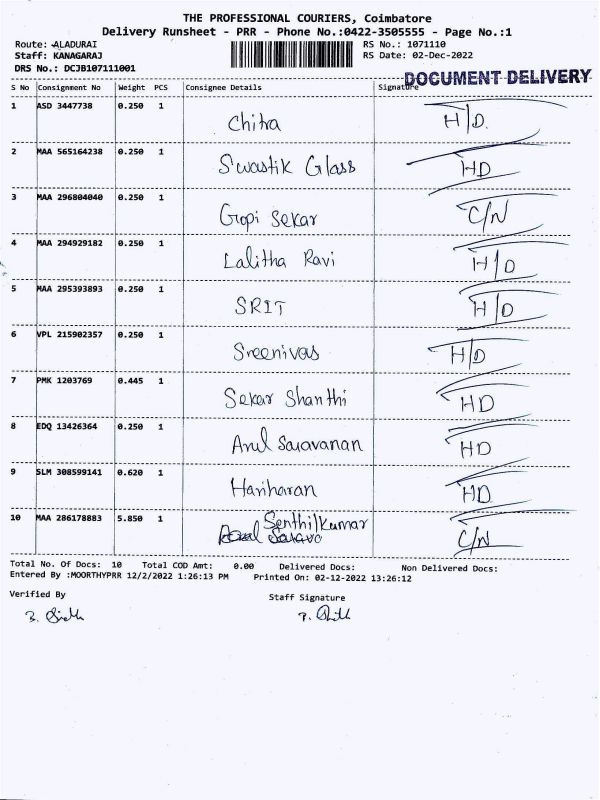 THE PROFESSIONAL COURIERS, Coimbatore
Delivery Runsheet - PRR - Phone No.:0422-3505555 - Page No.:1
Route: ALADURAI RS No.: 1071110
Staff: KANAGARAJ RS Date: 02-Dec-2022
DRS No.: DCJB107111001
DOCUMENT DELIVERY
S No Consignment No Weight PCS Consignee Details Signature
1 ASD 3447738 0.250 1 Chitra H/D.
2 MAA 565164238 0.250 1 Swastik Glass HD
3 MAA 296804040 0.250 1 Gopi Sekar C/N
4 MAA 294929182 0.250 1 Lalitha Ravi H/D
5 MAA 295393893 0.250 1 SRIT H/D
6 VPL 215902357 0.250 1 Sreenivas H/D
7 PMK 1203769 0.445 1 Sekar Shanthi HD
8 EDQ 13426364 0.250 1 Arul Saravanan HD
9 SLM 308599141 0.620 1 Hariharan HD
10 MAA 286178883 5.850 1 Senthilkumar C/N
Total No. Of Docs: 10 Total COD Amt: 0.00 Delivered Docs: Non Delivered Docs:
Entered By :MOORTHYPRR 12/2/2022 1:26:13 PM Printed On: 02-12-2022 13:26:12
Verified By Staff Signature